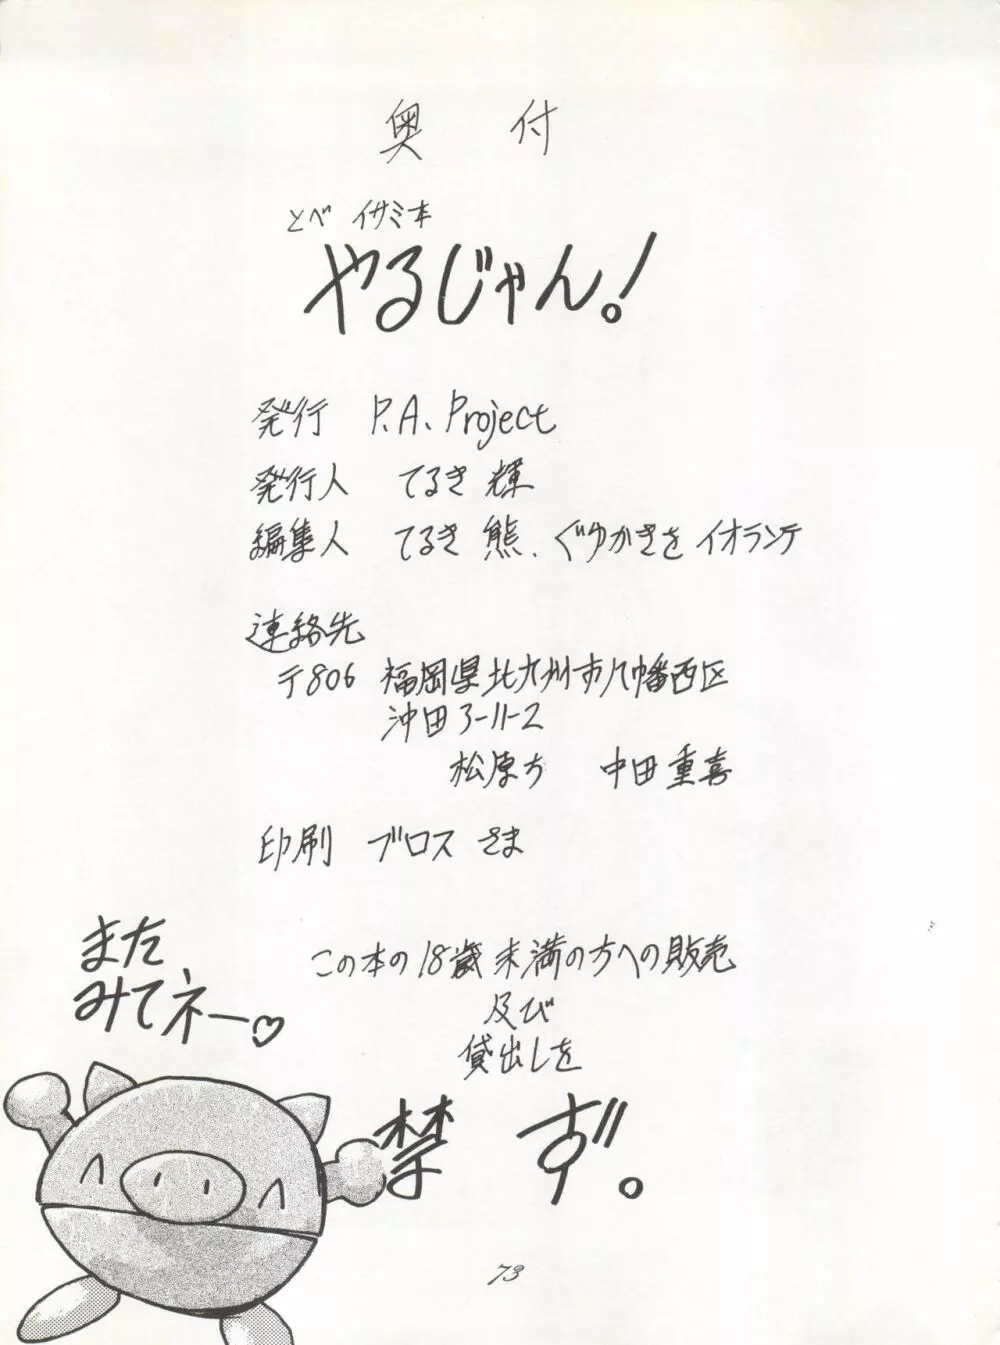 奥付
とべ イサミ本
やるじゃん!
発行 P.A. Project
発行人 てるき 輝
編集人 てるき 熊、ぐゆかきを イオランテ
連絡先
〒806 福岡県北九州市八幡西区
沖田3-11-2
松原方 中田重喜
印刷 ブロス さま
この本の18歳未満の方への販売
及び
貸出しを
禁ず。
また
みてネー♡
73